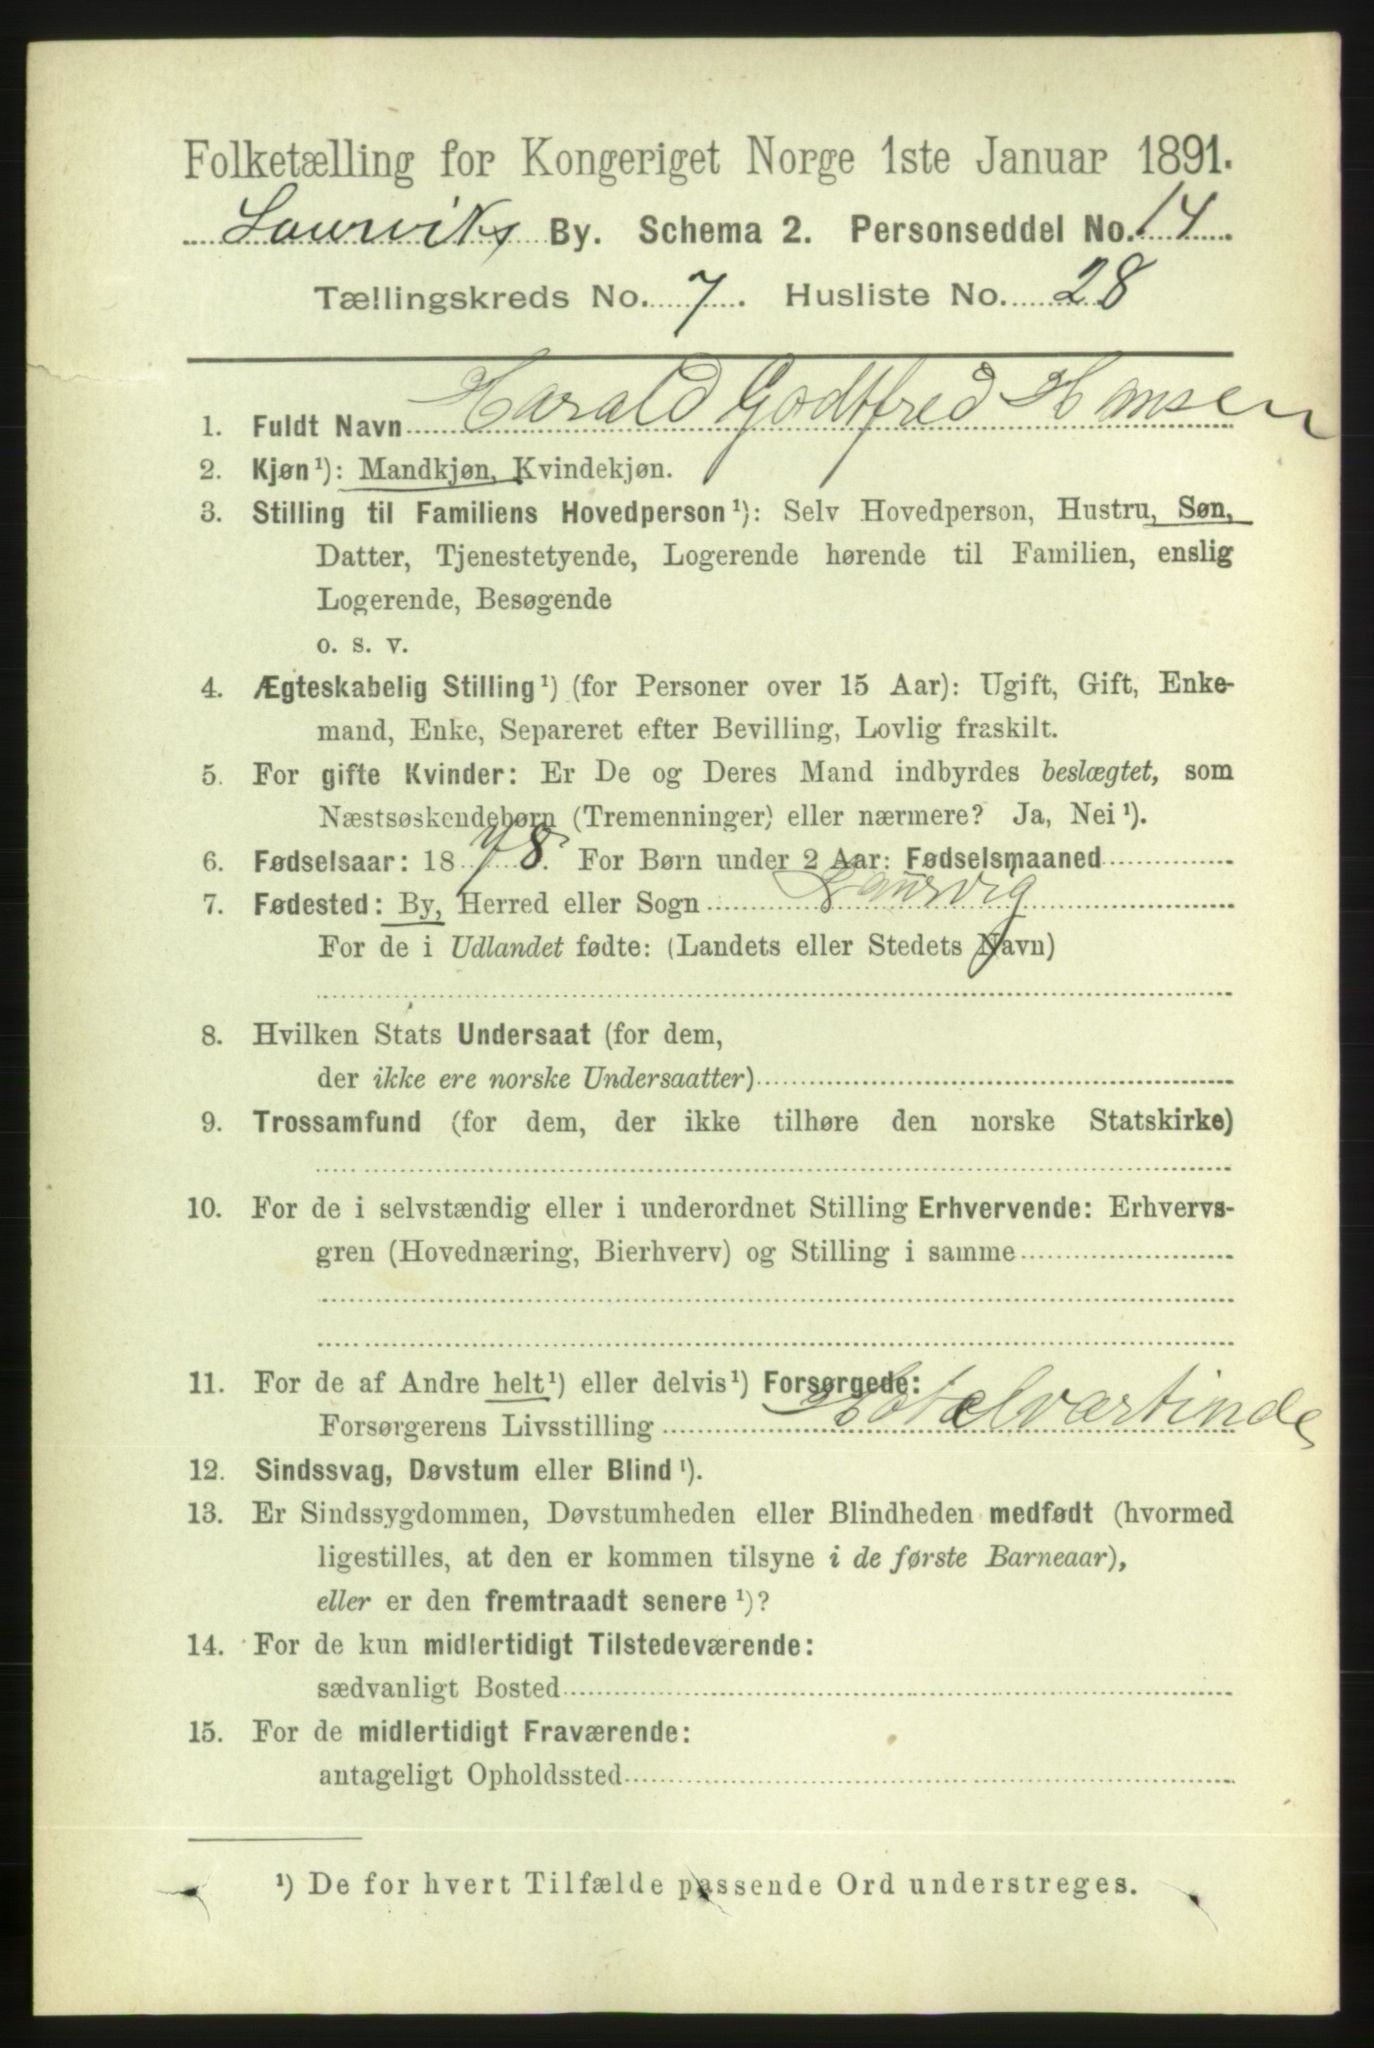 Folketælling for Kongeriget Norge 1ste Januar 1891.
Laurviks By. Schema 2. Personseddel No. 14
Tællingskreds No. 7. Husliste No. 28
1. Fuldt Navn Harald Godtfred Hansen
2. Kjøn¹): Mandkjøn, Kvindekjøn.
3. Stilling til Familiens Hovedperson¹): Selv Hovedperson, Hustru, Søn,
Datter, Tjenestetyende, Logerende hørende til Familien, enslig
Logerende, Besøgende
o. s. v.
4. Ægteskabelig Stilling¹) (for Personer over 15 Aar): Ugift, Gift, Enke-
mand, Enke, Separeret efter Bevilling, Lovlig fraskilt.
5. For gifte Kvinder: Er De og Deres Mand indbyrdes beslægtet, som
Næstsøskendebørn (Tremenninger) eller nærmere? Ja, Nei¹).
6. Fødselsaar: 1878. For Børn under 2 Aar: Fødselsmaaned
7. Fødested: By, Herred eller Sogn Laurvig
For de i Udlandet fødte: (Landets eller Stedets Navn)
8. Hvilken Stats Undersaat (for dem,
der ikke ere norske Undersaatter)
9. Trossamfund (for dem, der ikke tilhøre den norske Statskirke)
10. For de i selvstændig eller i underordnet Stilling Erhvervende: Erhvervs-
gren (Hovednæring, Bierhverv) og Stilling i samme
11. For de af Andre helt¹) eller delvis¹) Forsørgede:
Forsørgerens Livsstilling Hotelværtinde
12. Sindssvag, Døvstum eller Blind¹).
13. Er Sindssygdommen, Døvstumheden eller Blindheden medfødt (hvormed
ligestilles, at den er kommen tilsyne i de første Barneaar),
eller er den fremtraadt senere¹)?
14. For de kun midlertidigt Tilstedeværende:
sædvanligt Bosted
15. For de midlertidigt Fraværende:
antageligt Opholdssted
¹) De for hvert Tilfælde passende Ord understreges.